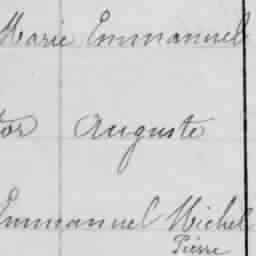 Marie Emmanuel
tor Auguste
Emmanuel Michel
Pierre